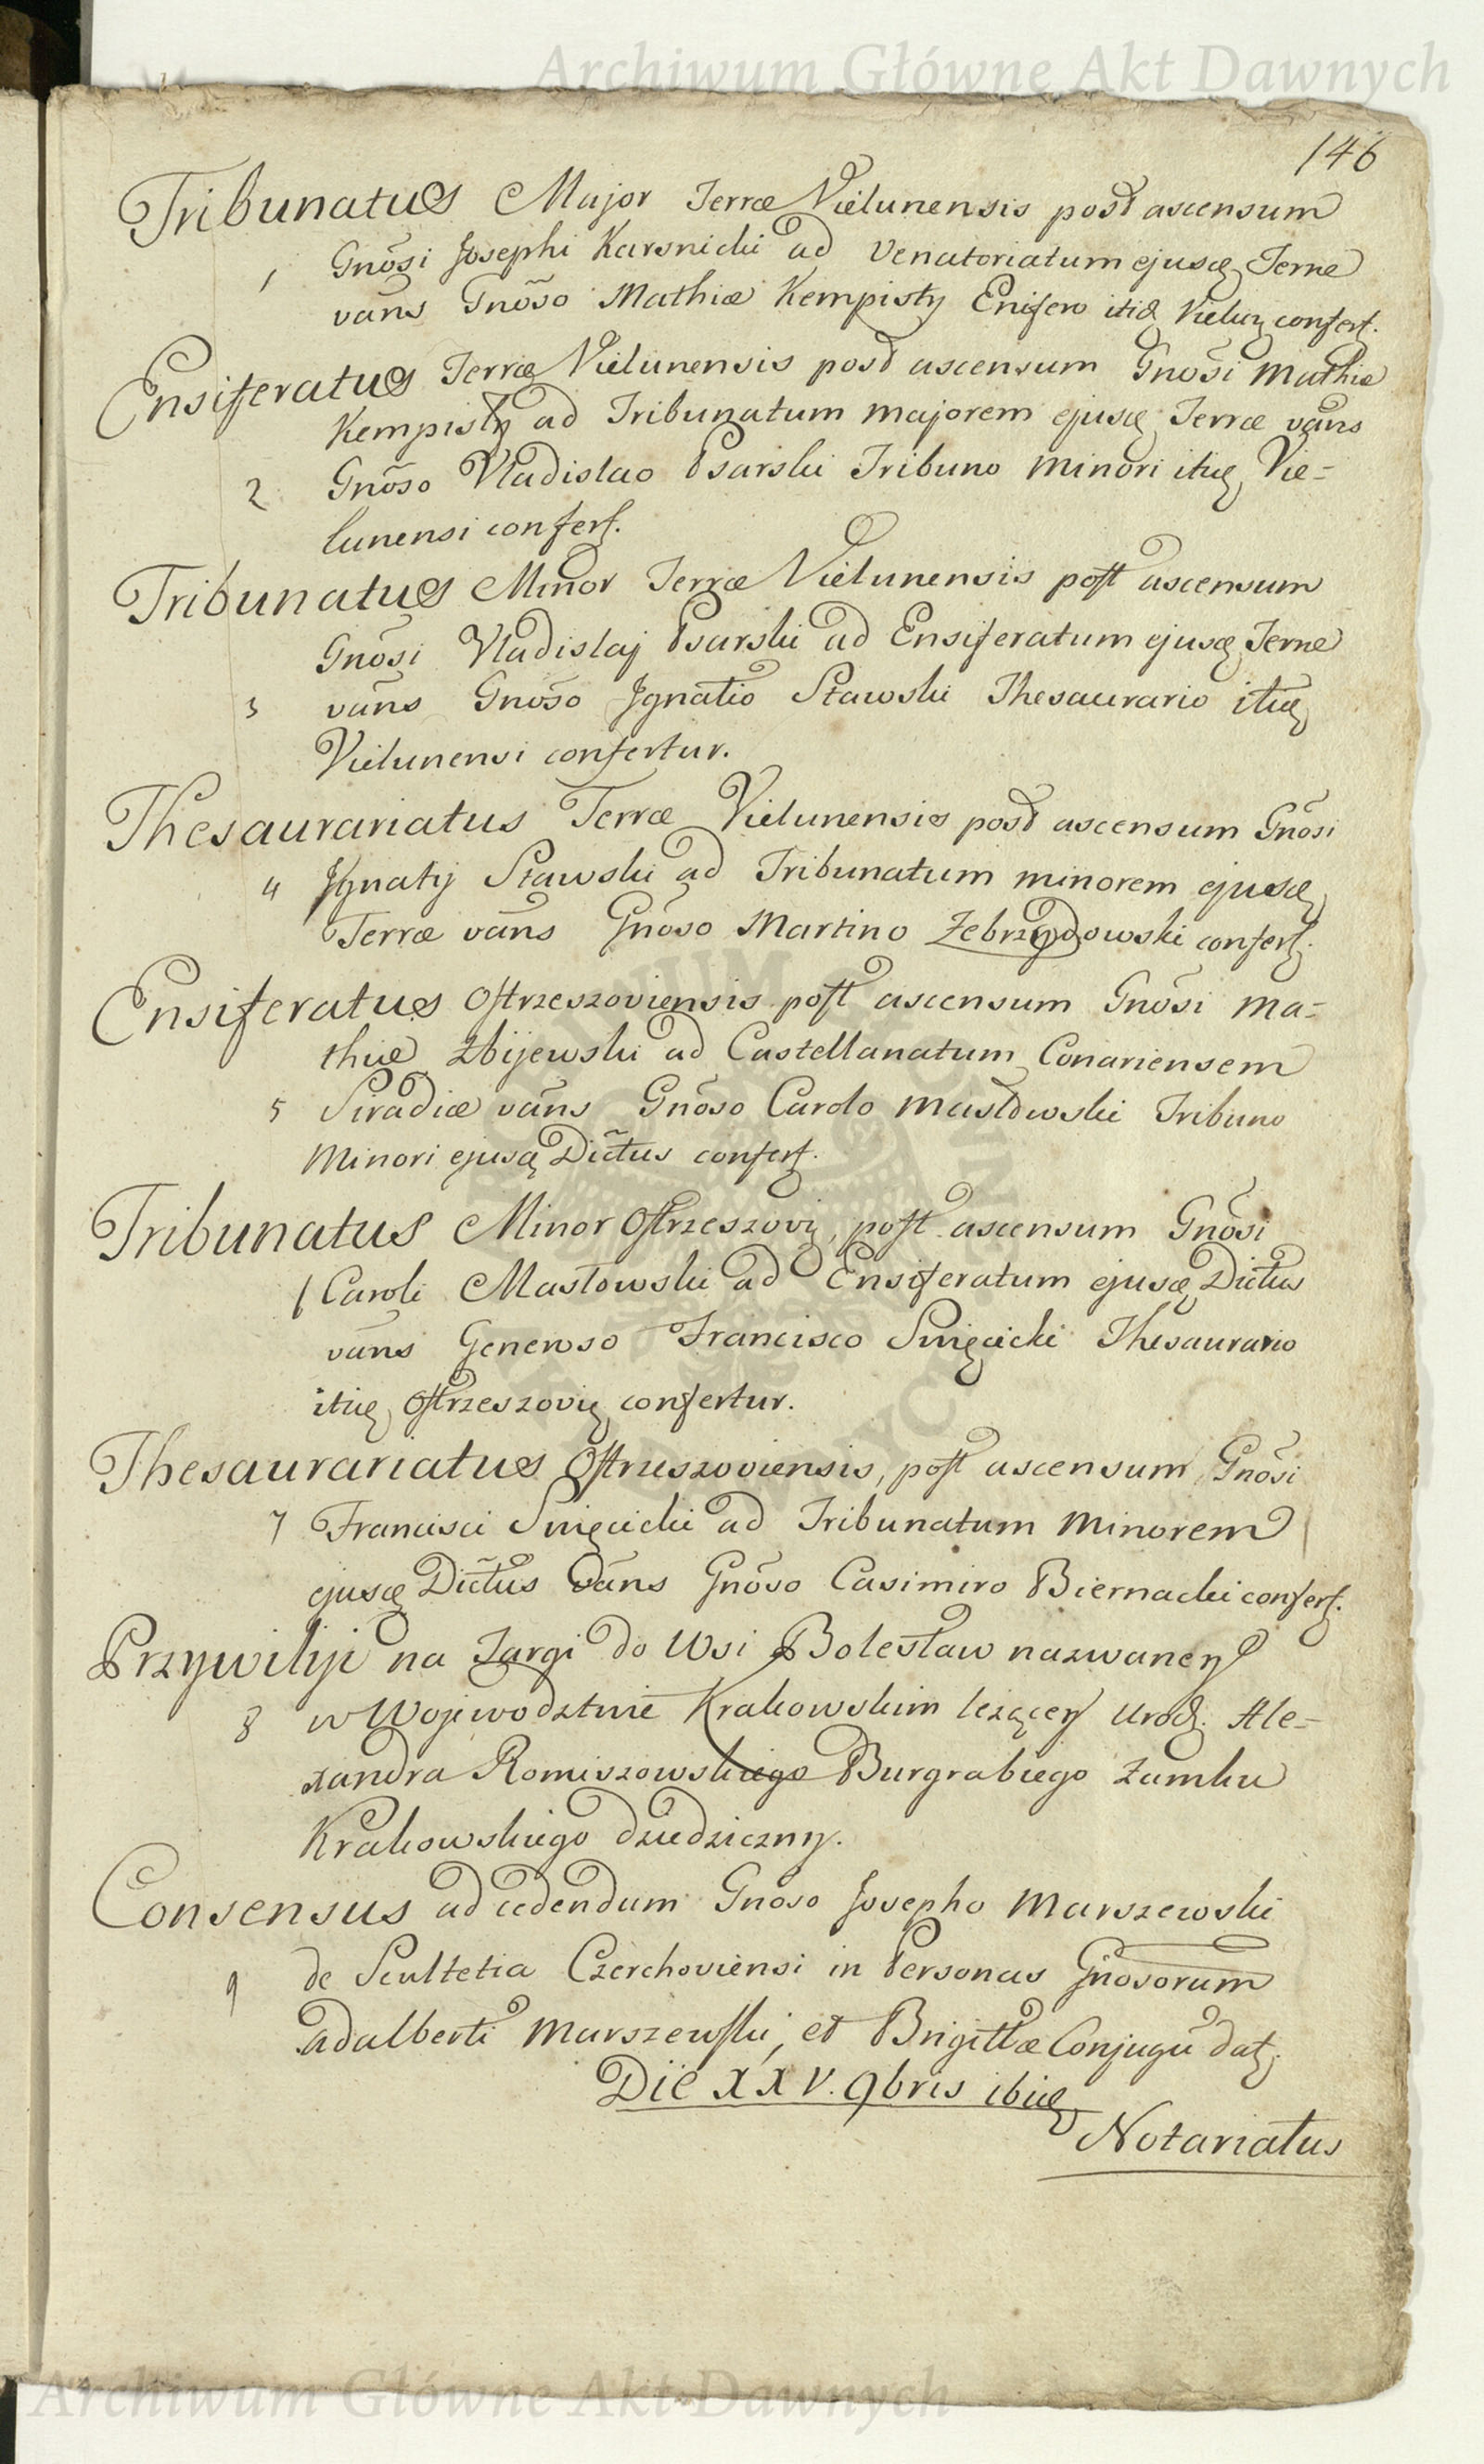 Archiwum Główne Akt Dawnych
146
Tribunatus Major Terræ Vielunensis post ascensum
1 Gnõsi Josephi Karsnicki ad Venatoriatum ejusq Terræ
vãns Gnõso Mathiæ Kempisty Ensifero itiq Vieluņ confert.
Ensiferatus Terræ Vielunensis post ascensum Gnõsi Mathiæ
Kempisty ad Tribunatum majorem ejusq Terræ vãns
2 Gnõso Vladislao Psarski Tribuno Minori itiq Vie=
lunensi confert.
Tribunatus Minor Terræ Vielunensis post ascensum
Gnõsi Vladislaj Psarski ad Ensiferatum ejusq Terræ
3 vãns Gnõso Jgnatio Stawski Thesaurario itiq
Vielunensi confertur.
Thesaurariatus Terræ Vielunensis post ascensum Gnõsi
4 Jgnatij Stawski ad Tribunatum minorem ejusq
Terræ vãns Gnõso Martino Zebrzydowski confert.
Ensiferatus Ostrzeszoviensis post ascensum Gnõsi Ma=
thiæ Zbijewski ad Castellanatum Conariensem
5 Siradiæ vãns Gnõso Carolo Masłowski Tribuno
Minori ejusq Dictus confert.
Tribunatus Minor Ostrzeszovi, post ascensum Gnõsi
6 Caroli Masłowski ad Ensiferatum ejusq Dictus
vãns Generoso Francisco Swięcicki Thesaurario
itiq Ostrzeszovi confertur.
Thesaurariatus Ostrzeszoviensis, post ascensum Gnõsi
7 Francisci Swięcicki ad Tribunatum Minorem
ejusq Dictus vãns Gnõso Casimiro Biernacki confert.
Przywiliji na Targi do Wsi Bolesław nazwaney
8 w Wojewodztwie Krakowskim leżącey Urodz. Ale=
xandra Romiszowskiego Burgrabiego Zamku
Krakowskiego dziedziczny.
Consensus ad cedendum Gnoso Josepho Marszewski
9 de Scultetia Czerchoviensi in Personas Gnosorum
Adalberti Marszewski, et Brigittæ Conjugũ dat.
Die XXV. 9bris ibiq
Notariatus
Archiwum Główne Akt Dawnych